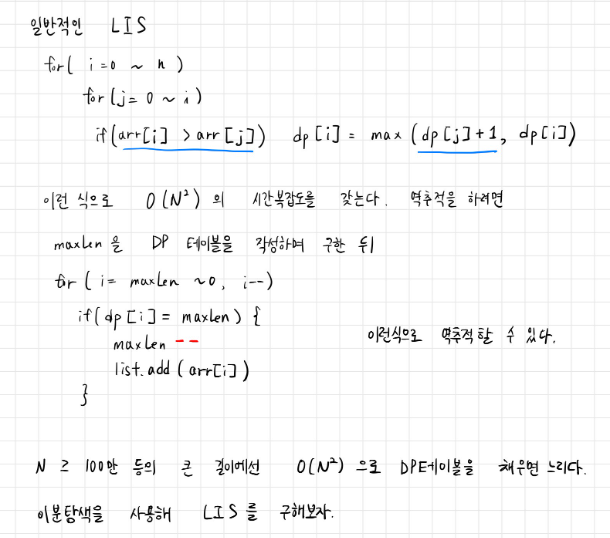 일반적인 LIS
for( i=0 ~ n )
for (j= 0 ~ i)
if(arr[i] > arr[j]) dp[i] = max (dp[j]+1, dp[i])
이런 식으로 O(N²) 의 시간복잡도를 갖는다. 역추적을 하려면
maxLen 을 DP 테이블을 작성하며 구한 뒤
for ( i= maxLen ~0, i--)
if(dp[i]= maxLen) {
maxLen --
list.add (arr[i])
}
이런식으로 역추적할 수 있다.
N ≥ 100만 등의 큰 길이에선 O(N²) 으로 DP테이블을 채우면 느리다.
이분탐색을 사용해 LIS를 구해보자.